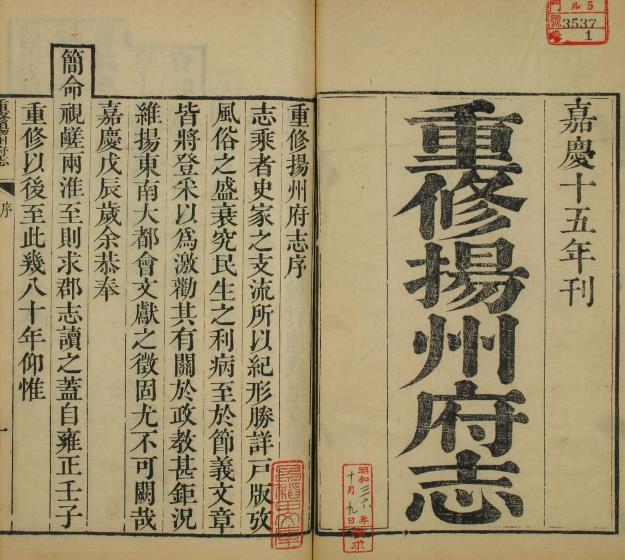 嘉慶十五年刊
重修揚州府志
門 ル5
號 3537
1
昭和 年
十月九日
重修揚州府志序
志乘者史家之支流所以紀形勝詳戸版攷
風俗之盛衰究民生之利病至於節義文章
皆將登采以為激勸其有關於政教甚鉅况
維揚東南大都會文獻之徵固尤不可闕哉
嘉慶戊辰歲余恭奉
簡命視鹺兩淮至則求郡志讀之蓋自雍正壬子
重修以後至此幾八十年仰惟
重修揚州府志
序
一